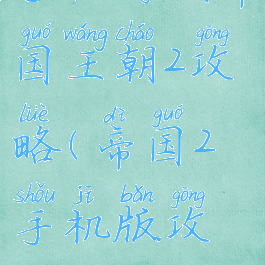 guó wáng cháo gōng
国王朝2攻
lüè dì guó
略(帝国2
shǒu jī bǎn gōng
手机版攻